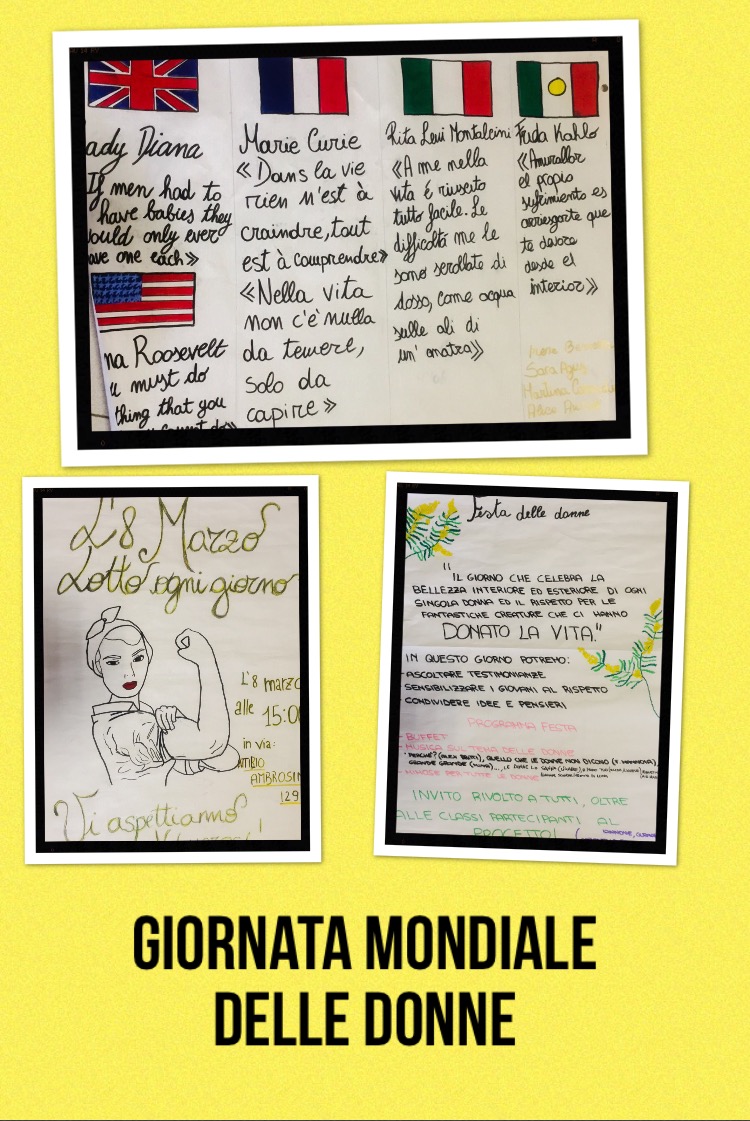 ady Diana
If men had to
have babies they
ould only ever
ave one each»
na Roosevelt
u must do
thing that you
Marie Curie
«Dans la vie
rien n'est à
craindre, tout
est à comprendre»
«Nella vita
non c'è nulla
da temere,
solo da
capire»
Rita Levi Montalcini
«A me nella
vita é riuscito
tutto facile. Le
difficoltà me le
sono scrollate di
dosso, come acqua
sulle ali di
un' anatra»
Frida Kahlo
«Amurallar
el propio
sufrimiento es
arriesgarte que
te devore
desde el
interior»
Sara
Martina
Alice
L'8 Marzo
Lotto ogni giorno
L'8 marzo
alle 15:00
in via:
AMBROSIN
129
Vi aspettiamo
Festa delle donne
"IL GIORNO CHE CELEBRA LA
BELLEZZA INTERIORE ED ESTERIORE DI OGNI
SINGOLA DONNA ED IL RISPETTO PER LE
FANTASTICHE CREATURE CHE CI HANNO
DONATO LA VITA."
IN QUESTO GIORNO POTREMO:
-ASCOLTARE TESTIMONIANZE
SENSIBILIZZARE I GIOVANI AL RISPETTO
CONDIVIDERE IDEE E PENSIERI
PROGRAMMA FESTA
- BUFFET
- MUSICA SUL TEMA DELLE DONNE
PERCHÉ? (ALEX BRITTI), QUELLO CHE LE DONNE NON DICONO (F. MANNOIA),
- MIMOSE PER TUTTE LE DONNE
INVITO RIVOLTO A TUTTI, OLTRE
ALLE CLASSI PARTECIPANTI AL
PROGETTO!
GIORNATA MONDIALE
DELLE DONNE